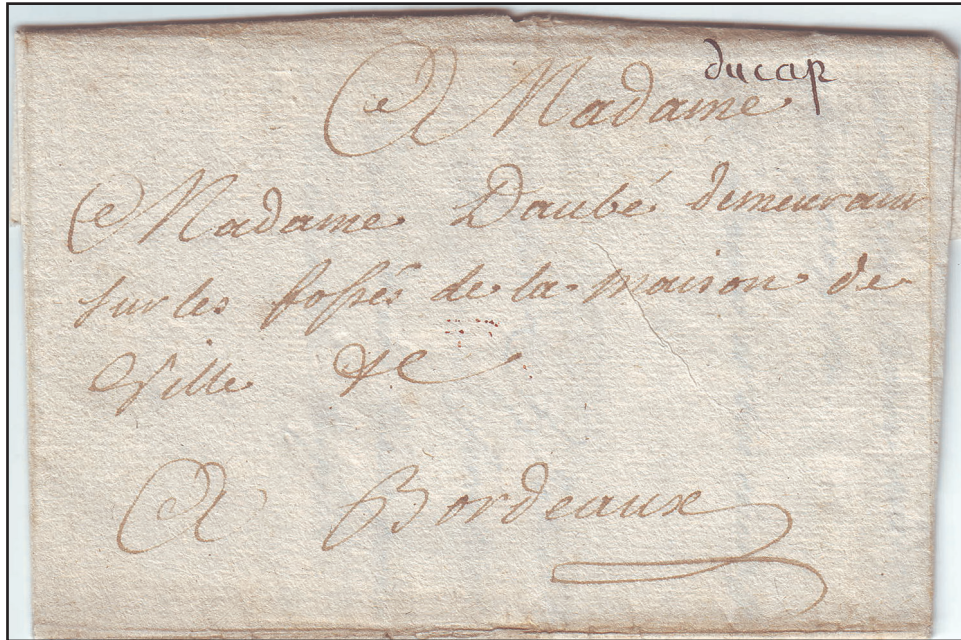 ducap
A Madame
Madame Daubé demeurant
sur les fossés de la maison de
Ville &c
A Bordeaux